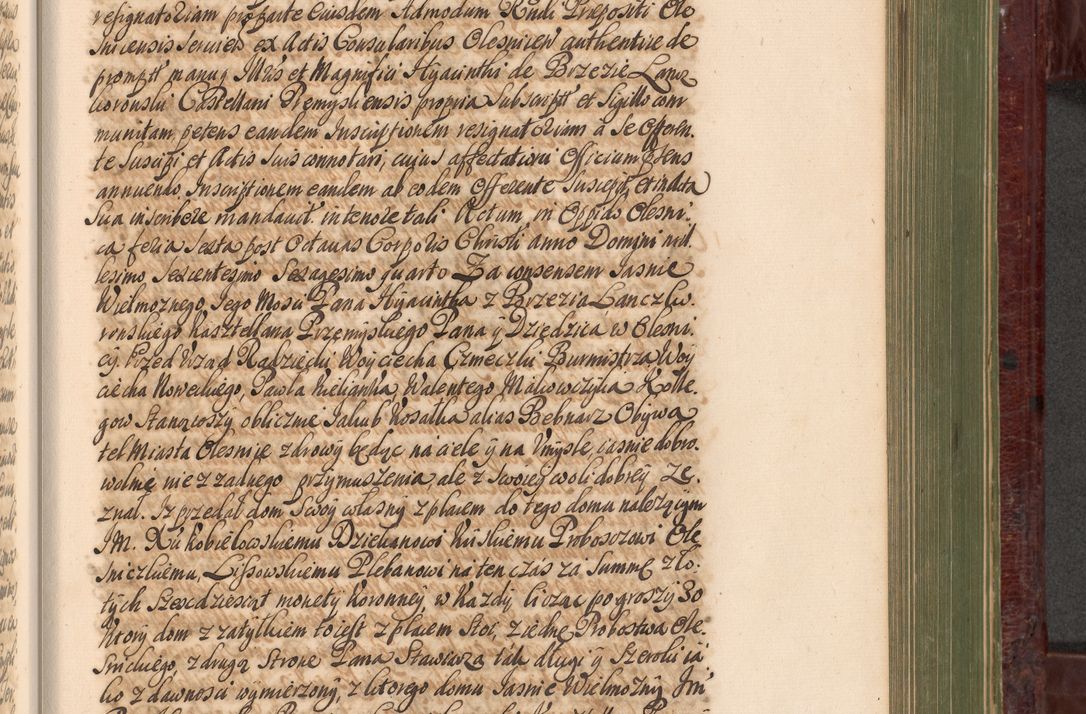 resignatoriam pro parte eiusdem Admodum Rndi Præpositi Ole
snicensis servien ex Actis Consularibus Olesnicen authentice de
prompt manuq Illris et Magnifici Hyacinthi de Brzezie Lanc
koronski Castellani Premysliensis propria Subscript et Sigillo com
munitam, petens eandem Inscriptionem resignatoriam a Se Offeren
te Suscipi et Actis Suis connotari, cujus affectationi Officium p̃sens
annuendo Inscriptionem eandem ab eodem Offerente Suscepit, et in Acta
Sua inscribere mandavit in tenore tali Actum in Oppido Olesni
ca feria Sexta post Octavas Corporis Christi anno Domini mil
lesimo Sexcentesimo Sexagesimo quarto Za consensem Jasnie
Wielmoznego Jego Mosci Pana Hyacintha z Brzezia Lanczko
ronskiego Kasztellana Przemyslskiego Pana y Dziedzica w Olesni
cy. Przed Urząd Radziecki Woyciecha Czmeczki Burmistrza Woy
ciecha Noweckiego, Pawła Kielianka, Walentego Malicowczyka Kolle
gow Stanąwszy oblicznie Jakub Kosałka alias Bednarz Obywa
tel Miasta Olesnice zdrowy będąc na ciele y na Umysle jasnie dobro
wolnie nie z zadnego przymuszenia, ale z Swoiey woli dobrey Ze
znał. Iz przedał dom Swoy własny z placem do tego domu nalezącym
JM. Xu Kobielowskiemu Dziekanowi Kuskiemu Proboszczowi Ole
snickiemu, Lissowskiemu Plebanowi na ten czas za Summę zło
tych Szescdziesiąt monety koronney, w Kazdy licząc po groszy 30
Ktory dom z zatyłkiem to iest z placem Stoi, z iednę Probostwa Ole
snickiego, z drugą Strone Pana Stawiarza tak długi y Szeroki ia
ko z dawnosci wymierzony, z ktorego domu Jasnie Wielmozny Jm